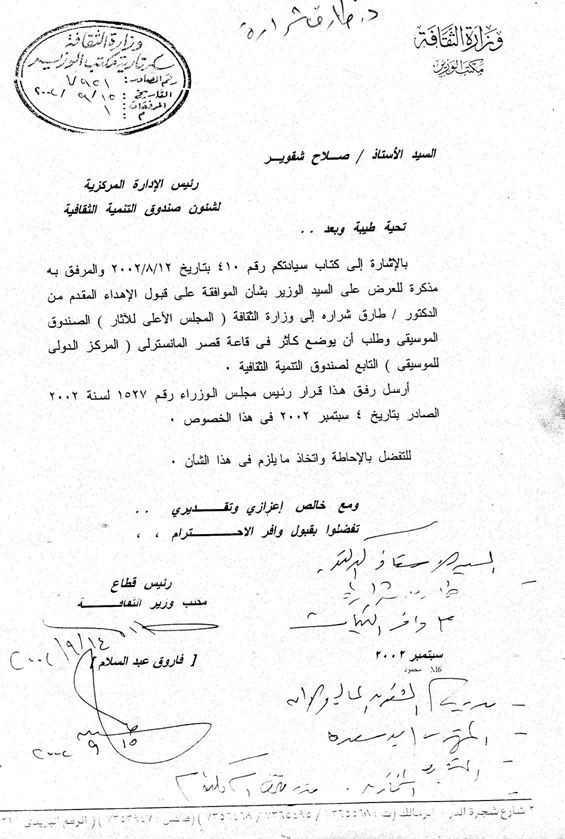 د. طارق شرارة
وزارة الثقافة
مكتب الوزير
وزارة الثقافة
سكرتارية مكتب الوزير
رقم الصادر: ٧٩٥١
التاريخ: ٢٠٠٢/٩/١٥
المرفقات: ١
السيد الأستاذ / صلاح شقوير
رئيس الإدارة المركزية
لشئون صندوق التنمية الثقافية
تحية طيبة وبعد ..
بالإشارة إلى كتاب سيادتكم رقم ٤١٠ بتاريخ ٢٠٠٢/٨/١٢ والمرفق به
مذكرة للعرض على السيد الوزير بشأن الموافقة على قبول الإهداء المقدم من
الدكتور / طارق شراره إلى وزارة الثقافة ( المجلس الأعلى للآثار ) الصندوق
الموسيقى وطلب أن يوضع كأثر فى قاعة قصر المانسترلى ( المركز الدولى
للموسيقى ) التابع لصندوق التنمية الثقافية ٠
أرسل رفق هذا قرار رئيس مجلس الوزراء رقم ١٥٢٧ لسنة ٢٠٠٢
الصادر بتاريخ ٤ سبتمبر ٢٠٠٢ فى هذا الخصوص ٠
للتفضل بالإحاطة واتخاذ ما يلزم فى هذا الشأن ٠
ومع خالص إعزازي وتقديري ..
تفضلوا بقبول وافر الاحترام ، ،
السيد الأستاذ الدكتور
طارق شرارة
رئيس قطاع
مكتب وزير الثقافة
مع وافر التحيات
٢٠٠٢/٩/١٤
[ فاروق عبد السلام ]
سبتمبر ٢٠٠٢
M6 محمود
٢٠٠٢ ٩ ١٥
٢ شارع شجرة الدر الزمالك